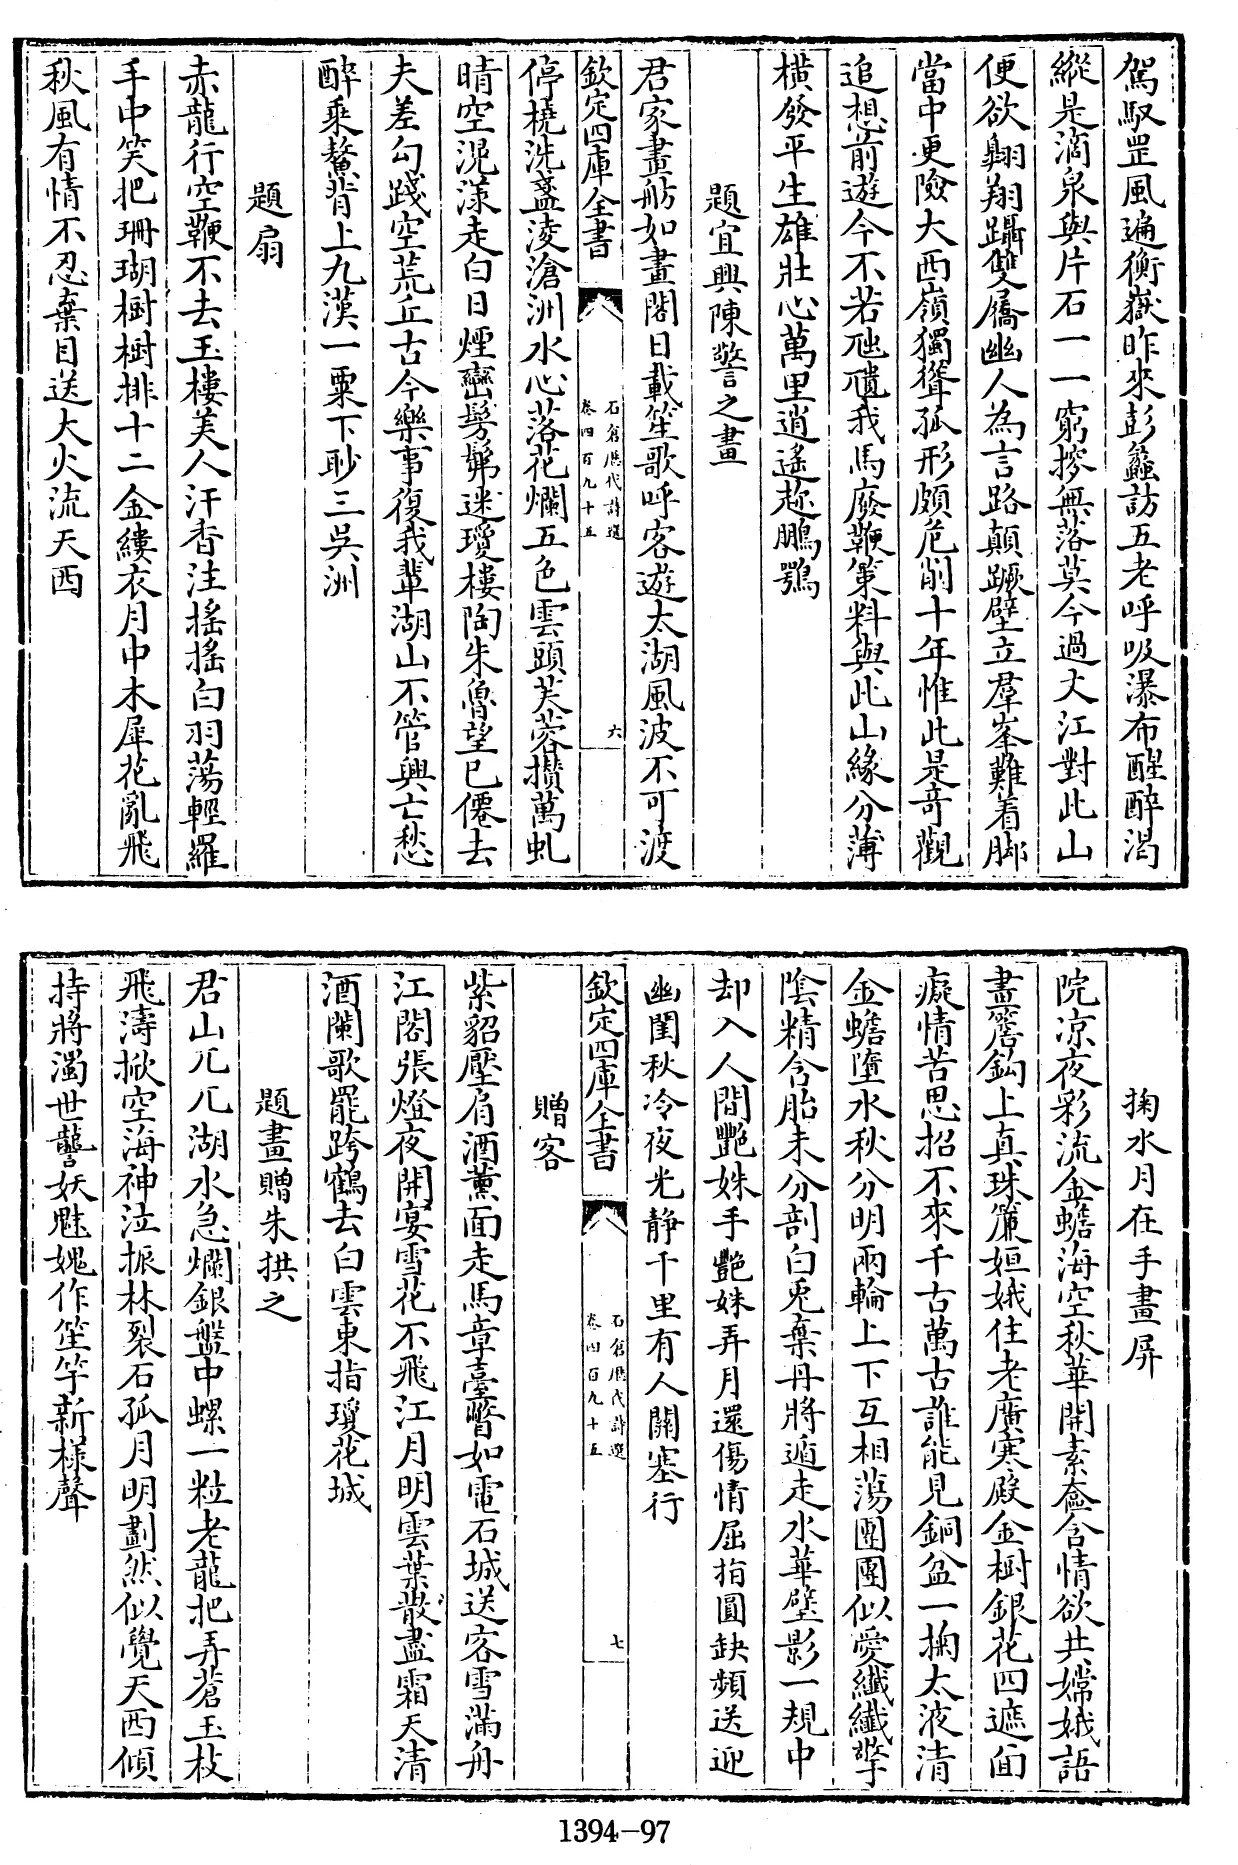 駕馭罡風遍衡嶽昨來彭蠡訪五老呼吸瀑布醒醉渴
縱是滴泉與片石一一窮探無落莫今過大江對此山
便欲翺翔躡雙屩幽人為言路顛蹶壁立羣峯難着脚
當中更險大西嶺獨聳孤形頗危削十年惟此是竒觀
追想前遊今不若虺隤我馬廢鞭策料與此山緣分薄
橫發平生雄壯心萬里逍遙趂鵬鶚
題宜興陳警之畫
君家畫舫如畫閣日載笙歌呼客遊太湖風波不可渡
欽定四庫全書
石倉歴代詩選
卷四百九十五
六
停橈洗盞凌滄洲水心落花爛五色雲頭芙蓉攢萬虬
晴空滉漾走白日煙巒髣髴迷瓊樓陶朱魯望已僊去
夫差勾踐空荒丘古今樂事復我輩湖山不管興亡愁
醉乗鰲背上九漢一粟下眇三吳洲
題扇
赤龍行空鞭不去玉樓美人汗香注搖搖白羽蕩輕羅
手中笑把珊瑚樹樹排十二金縷衣月中木犀花亂飛
秋風有情不忍棄目送大火流天西
掬水月在手畫屏
院凉夜彩流金蟾海空秋華開素奩含情欲共嫦娥語
畫簷鈎上真珠簾姮娥住老廣寒殿金樹銀花四遮面
癡情苦思招不來千古萬古誰能見銅盆一掬太液清
金蟾墮水秋分明兩輪上下互相蕩團團似愛纖纖擎
陰精含胎未分剖白兎棄丹將遁走水華壁影一規中
却入人間艷姝手艷姝弄月還傷情屈指圓缺頻送迎
幽閨秋冷夜光靜千里有人關塞行
欽定四庫全書
石倉歴代詩選
卷四百九十五
七
贈客
紫貂壓肩酒薰面走馬章臺瞥如電石城送客雪滿舟
江閣張燈夜開宴雪花不飛江月明雲葉散盡霜天清
酒闌歌罷跨鶴去白雲東指瓊花城
題畫贈朱拱之
君山兀兀湖水急爛銀盤中螺一粒老龍把弄蒼玉枝
飛濤掀空海神泣振林裂石孤月明劃然似覺天西傾
持將濁世聾妖魅媿作笙竽新樣聲
1394-97